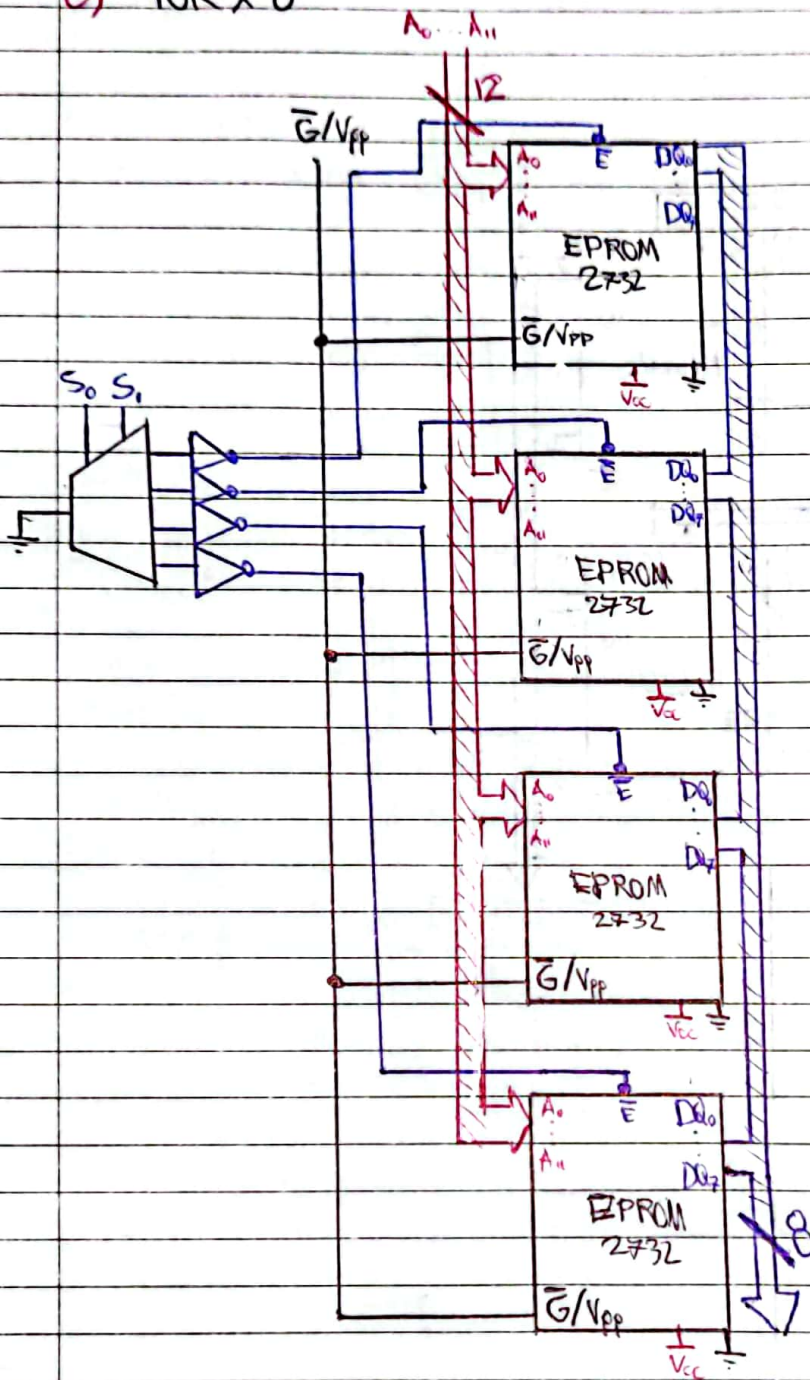 A₀ .. A₁₁
12
G̅/Vpp
A₀ E̅ DQ₀
A₁₁
EPROM
2732
G̅/Vpp
Vcc
S₀ S₁
A₀ E̅ DQ₀
A₁₁ DQ₇
EPROM
2732
G̅/Vpp
Vcc
A₀ E̅
A₁₁ DQ₇
EPROM
2732
G̅/Vpp
Vcc
A₀ E̅ DQ₀
A₁₁ DQ₇
EPROM
2732
8
G̅/Vpp
Vcc